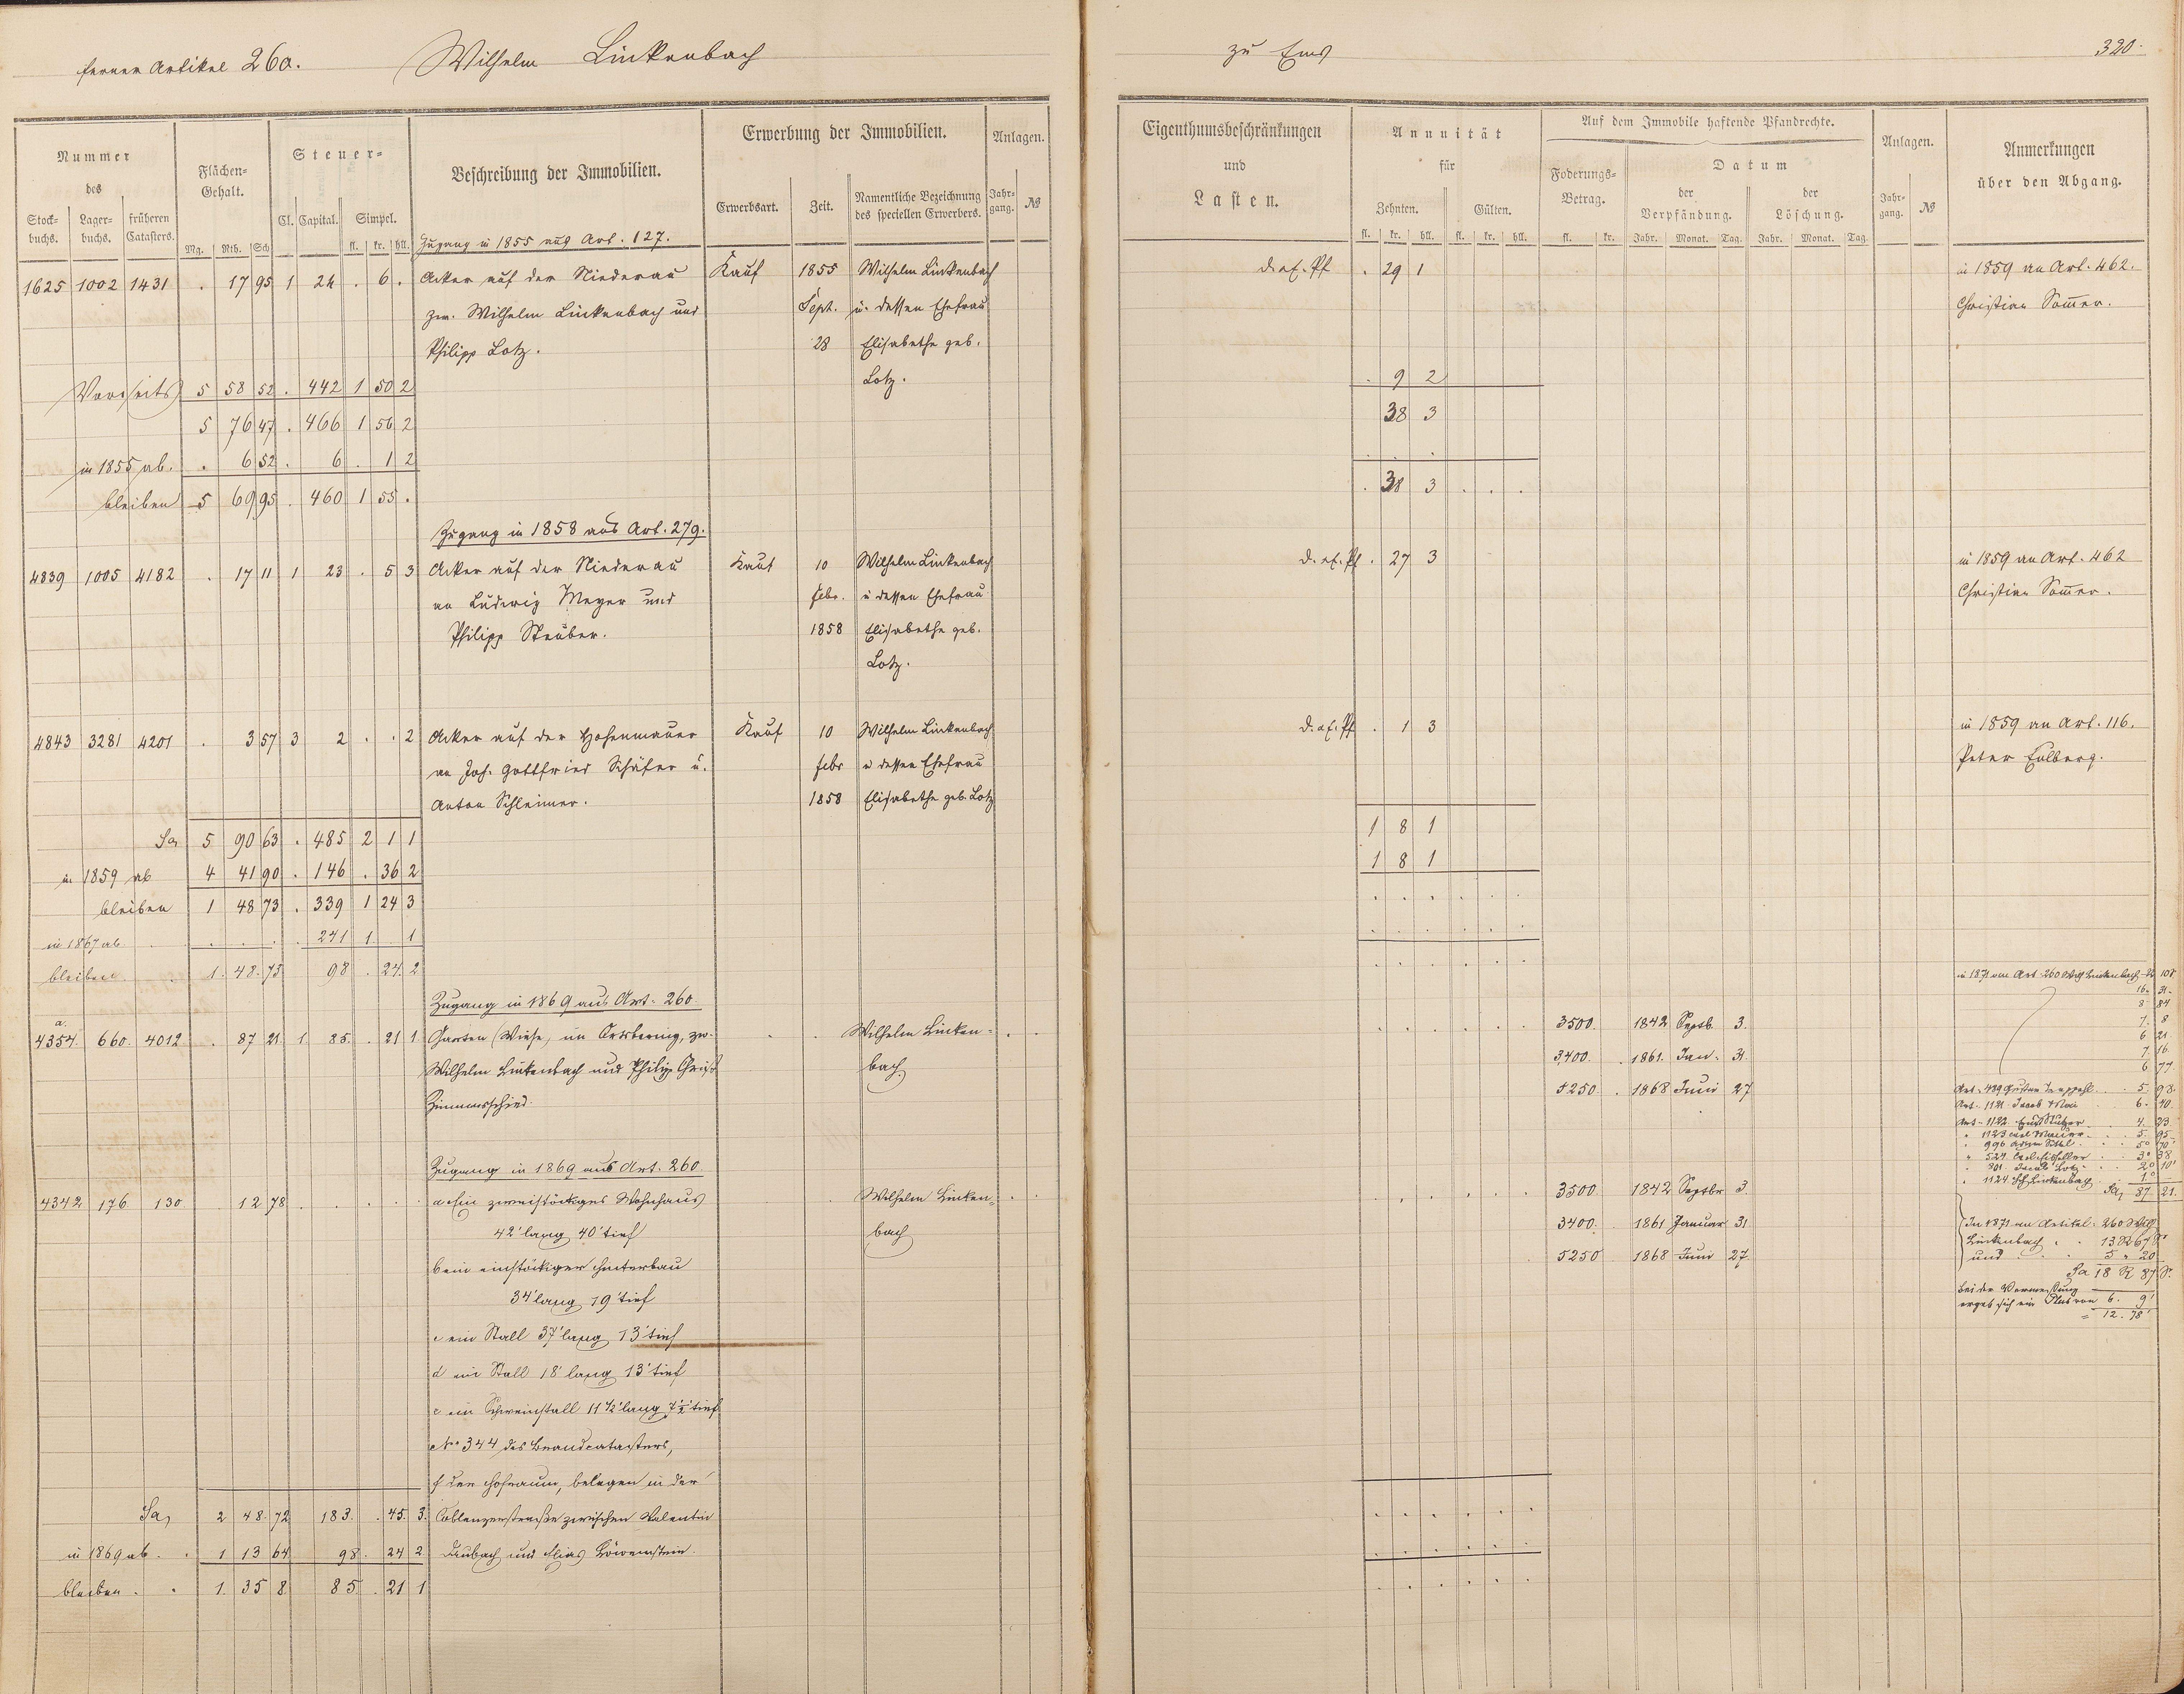 ferner Artikel 260. Wilhelm Linkenbach
zu Ems 320.
Nummer des
Stockbuchs. Lagerbuchs. früheren Catasters.
Flächen-Gehalt.
Mg. Rth. Sch
Steuer-
Cl. Capital. Simpel.
fl. kr. hll.
Beschreibung der Immobilien.
Erwerbung der Immobilien.
Erwerbsart. Zeit. Namentliche Bezeichnung des speciellen Erwerbers.
Anlagen.
Jahrgang. №
Eigenthumsbeschränkungen
und
Lasten.
Annuität
für
Zehnten. Gülten.
fl. kr. hll. fl. kr. hll.
Auf dem Immobile haftende Pfandrechte.
Foderungs-Betrag.
fl. kr.
Datum
der Verpfändung. der Löschung.
Jahr. Monat. Tag. Jahr. Monat. Tag.
Anlagen.
Jahrgang. №
Anmerkungen
über den Abgang.
Zugang in 1855 aus Art. 127.
1625 1002 1431 . 17 95 1 24 . 6 . Acker auf der Niederau Kauf 1855 Wilhelm Linkenbach . 29 1 in 1859 an Art. 462.
zw. Wilhelm Linkenbach und Sept. u. dessen Ehefrau Christian Sommer.
Philipp Lotz. 28 Elisabethe geb.
Lotz.
Vorseits 5 58 52 . 442 1 50 2 . 9 2
5 76 47 . 466 1 56 2 38 3
in 1855 ab. . 6 52 . 6 . 1 2 . . .
bleiben 5 69 95 . 460 1 55 . . 38 3 . . .
Zugang in 1858 aus Art. 279.
4839 1005 4182 . 17 11 1 23 . 5 3 Acker auf der Niederau Kauf 10 Wilhelm Linkenbach . 27 3 in 1859 an Art. 462
an Ludwig Meyer und Febr. u dessen Ehefrau Christian Sommer.
Philipp Steuber. 1858 Elisabethe geb.
Lotz.
4843 3281 4201 . 3 57 3 2 . . 2 Acker auf der Hohenmauer Kauf 10 Wilhelm Linkenbach . 1 3 in 1859 an Art. 116.
an Joh. Gottfried Schäfer u. Febr u dessen Ehefrau Peter Eulberg.
Anton Schleimer. 1858 Elisabethe geb. Lotz
Sa 5 90 63 . 485 2 1 1 1 8 1
in 1859 ab 4 41 90 . 146 . 36 2 1 8 1
bleiben 1 48 73 . 339 1 24 3 . . . . . .
in 1867 ab . . . . 241 1 . 1 . . . . . .
bleiben . . 1. 48. 73 98 . 24. 2 . . . . . .
Zugang in 1869 aus Art. 260
a.
4354. 660. 4012 . 87 21. 1. 85. . 21 1 Garten (Wiese, im Wilhelm Linken= 3500. 1842 Septb. 3.
Wilhelm Linkenbach und Philipp Christ bach 3400. 1861. Jan. 31.
Zimmerschied. 5250. 1868 Juni 27
in 1871 an Art. 260 Wilh Linkenbach 10
16. 31.
8 84
7. 8
6 21
7. 16.
6 77
5. 98.
Art. 1121 Jacob 6. 40.
Art. 1122 4. 23
1123 5. 95
5 70
3 38
Jacob Lotz 2 10
1124 Linkenbach 1
Sa, 87 21.
Zugang in 1869 aus Art. 260.
4342 176 130 12 78 . . . . . a. Ein zweistöckiges Wohnhaus Wilhelm Linken= 3500. 1842 Septbr 3.
42' lang 40' tief bach 3400. 1861 Januar 31
b ein einstöckiger Hinterbau 5250 1868 Juni 27.
34' lang 19' tief
c ein Stall 37' lang 13' tief
d ein Stall 18' lang 13' tief
e ein Schweinstall 11 1/2' lang 7 1/2' tief
No 344 des Brandcatasters,
f den Hofraum, belegen in der
Sa, 2 48. 72 183. . 45. 3. Coblenzerstraße zwischen Valentin . . . . . .
in 1869 ab. . 1 13 64 98. 24 2 Daubach und Elias Löwenstein. . . . . . .
bleiben. . 1. 35 8. 85. . 21 1 . . . . . .
In 1871 an Artikel 260 Wilh
Linkenbach . . 13 R 67 S
und . . 5 " 20
Sa 18 R 87 S.
bei der Vermessung
ergab sich ein Plus von 6. 9'
= 12. 78'